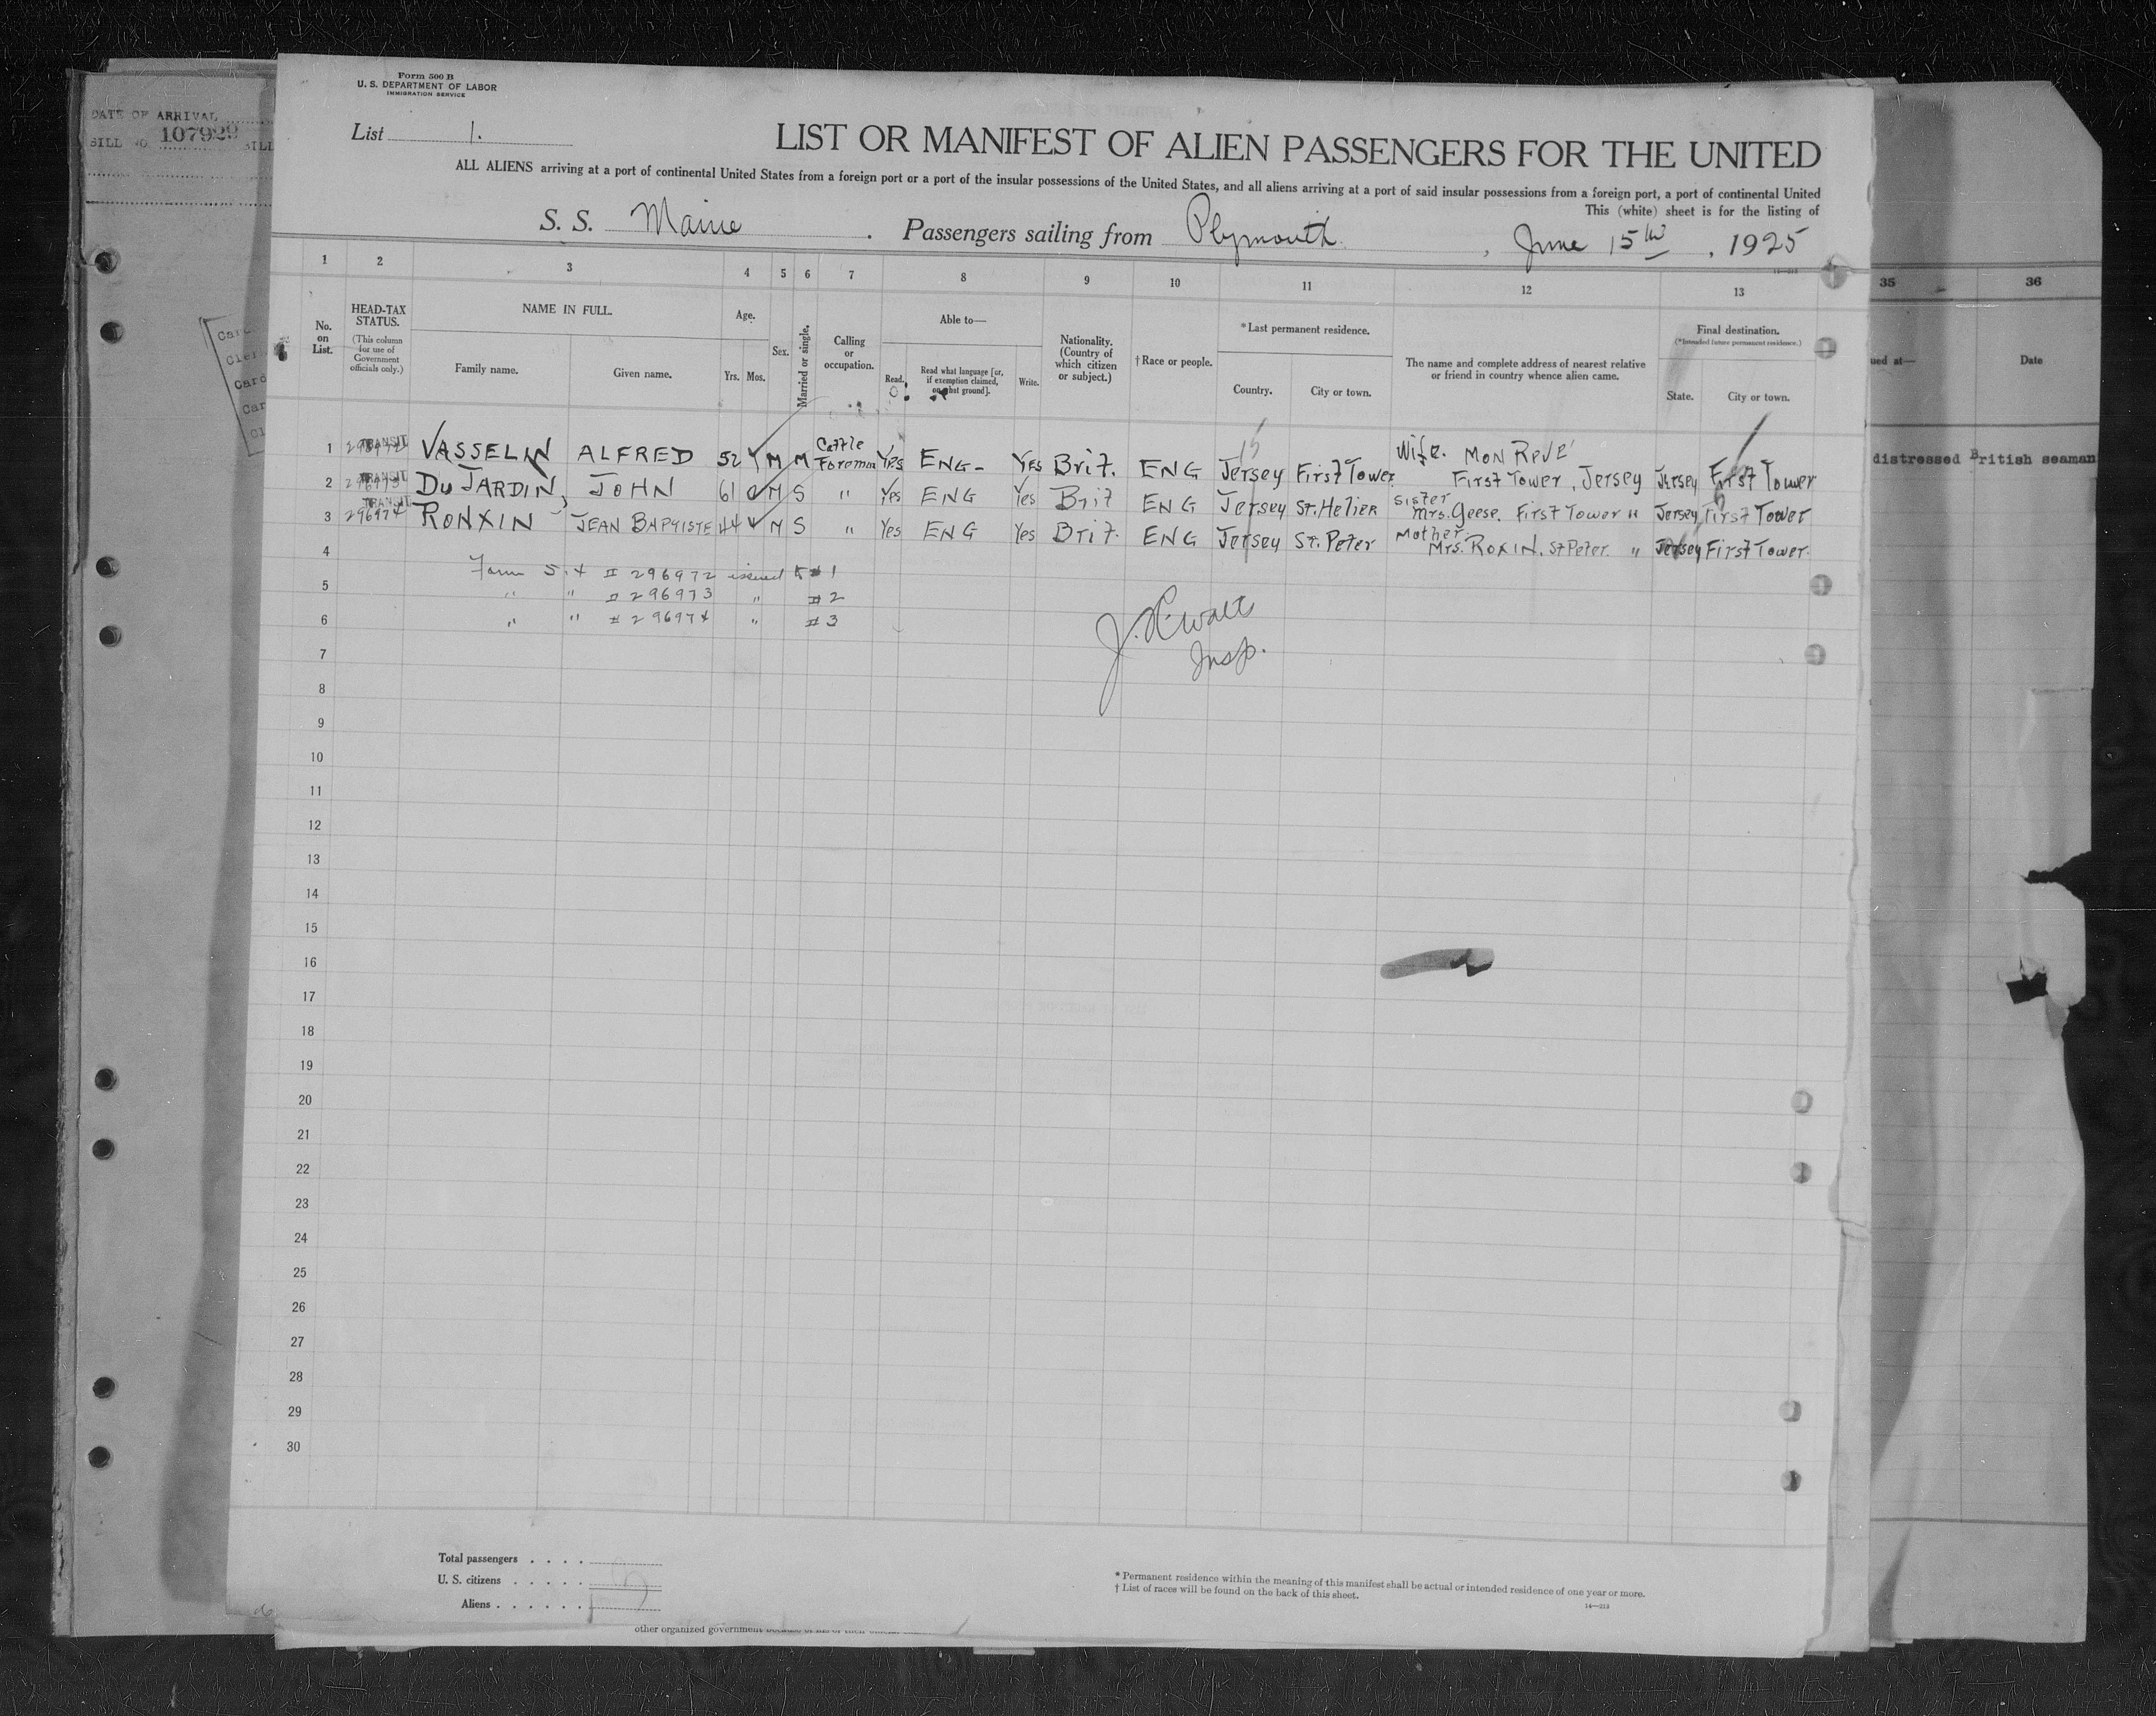 Form 500 B
U. S. DEPARTMENT OF LABOR
IMMIGRATION SERVICE
DATE OF ARRIVAL
BILL NO. 107929
List 1.
LIST OR MANIFEST OF ALIEN PASSENGERS FOR THE UNITED
ALL ALIENS arriving at a port of continental United States from a foreign port or a port of the insular possessions of the United States, and all aliens arriving at a port of said insular possessions from a foreign port, a port of continental United
This (white) sheet is for the listing of
S. S. Maine . Passengers sailing from Plymouth , June 15th , 1925
1 2 3 4 5 6 7 8 9 10 11 12 13 35 36
No. on List.
HEAD-TAX STATUS.
(This column for use of Government officials only.)
NAME IN FULL.
Family name. Given name.
Age.
Yrs. Mos.
Sex.
Married or single.
Calling or occupation.
Able to—
Read. Read what language [or, if exemption claimed, on what ground]. Write.
Nationality. (Country of which citizen or subject.)
† Race or people.
* Last permanent residence.
Country. City or town.
The name and complete address of nearest relative or friend in country whence alien came.
Final destination.
(*Intended future permanent residence.)
State. City or town.
ued at— Date
1 TRANSIT 296972 VASSELIN ALFRED 52 M M Cattle Foreman Yes ENG- Yes Brit. ENG Jersey First Tower Wife. MON REVE' First Tower, Jersey Jersey First Tower
2 TRANSIT 296973 DuJARDIN, JOHN 61 M S " Yes ENG Yes Brit ENG Jersey St. Helier Sister Mrs. Geese. First Tower " Jersey First Tower
3 TRANSIT 296974 RONXIN JEAN BAPTISTE 44 M S " Yes ENG Yes Brit. ENG Jersey St. Peter Mother. Mrs. ROXIN. St Peter. " Jersey First Tower.
distressed British seaman
4
Form 514 # 296972 issued # 1
5
" " # 296973 " # 2
6
" " # 296974 " # 3
Insp.
7
8
9
10
11
12
13
14
15
16
17
18
19
20
21
22
23
24
25
26
27
28
29
30
Total passengers . . . .
U. S. citizens . . . . .
Aliens . . . . . .
* Permanent residence within the meaning of this manifest shall be actual or intended residence of one year or more.
† List of races will be found on the back of this sheet.
14—213
other organized government because of his or their